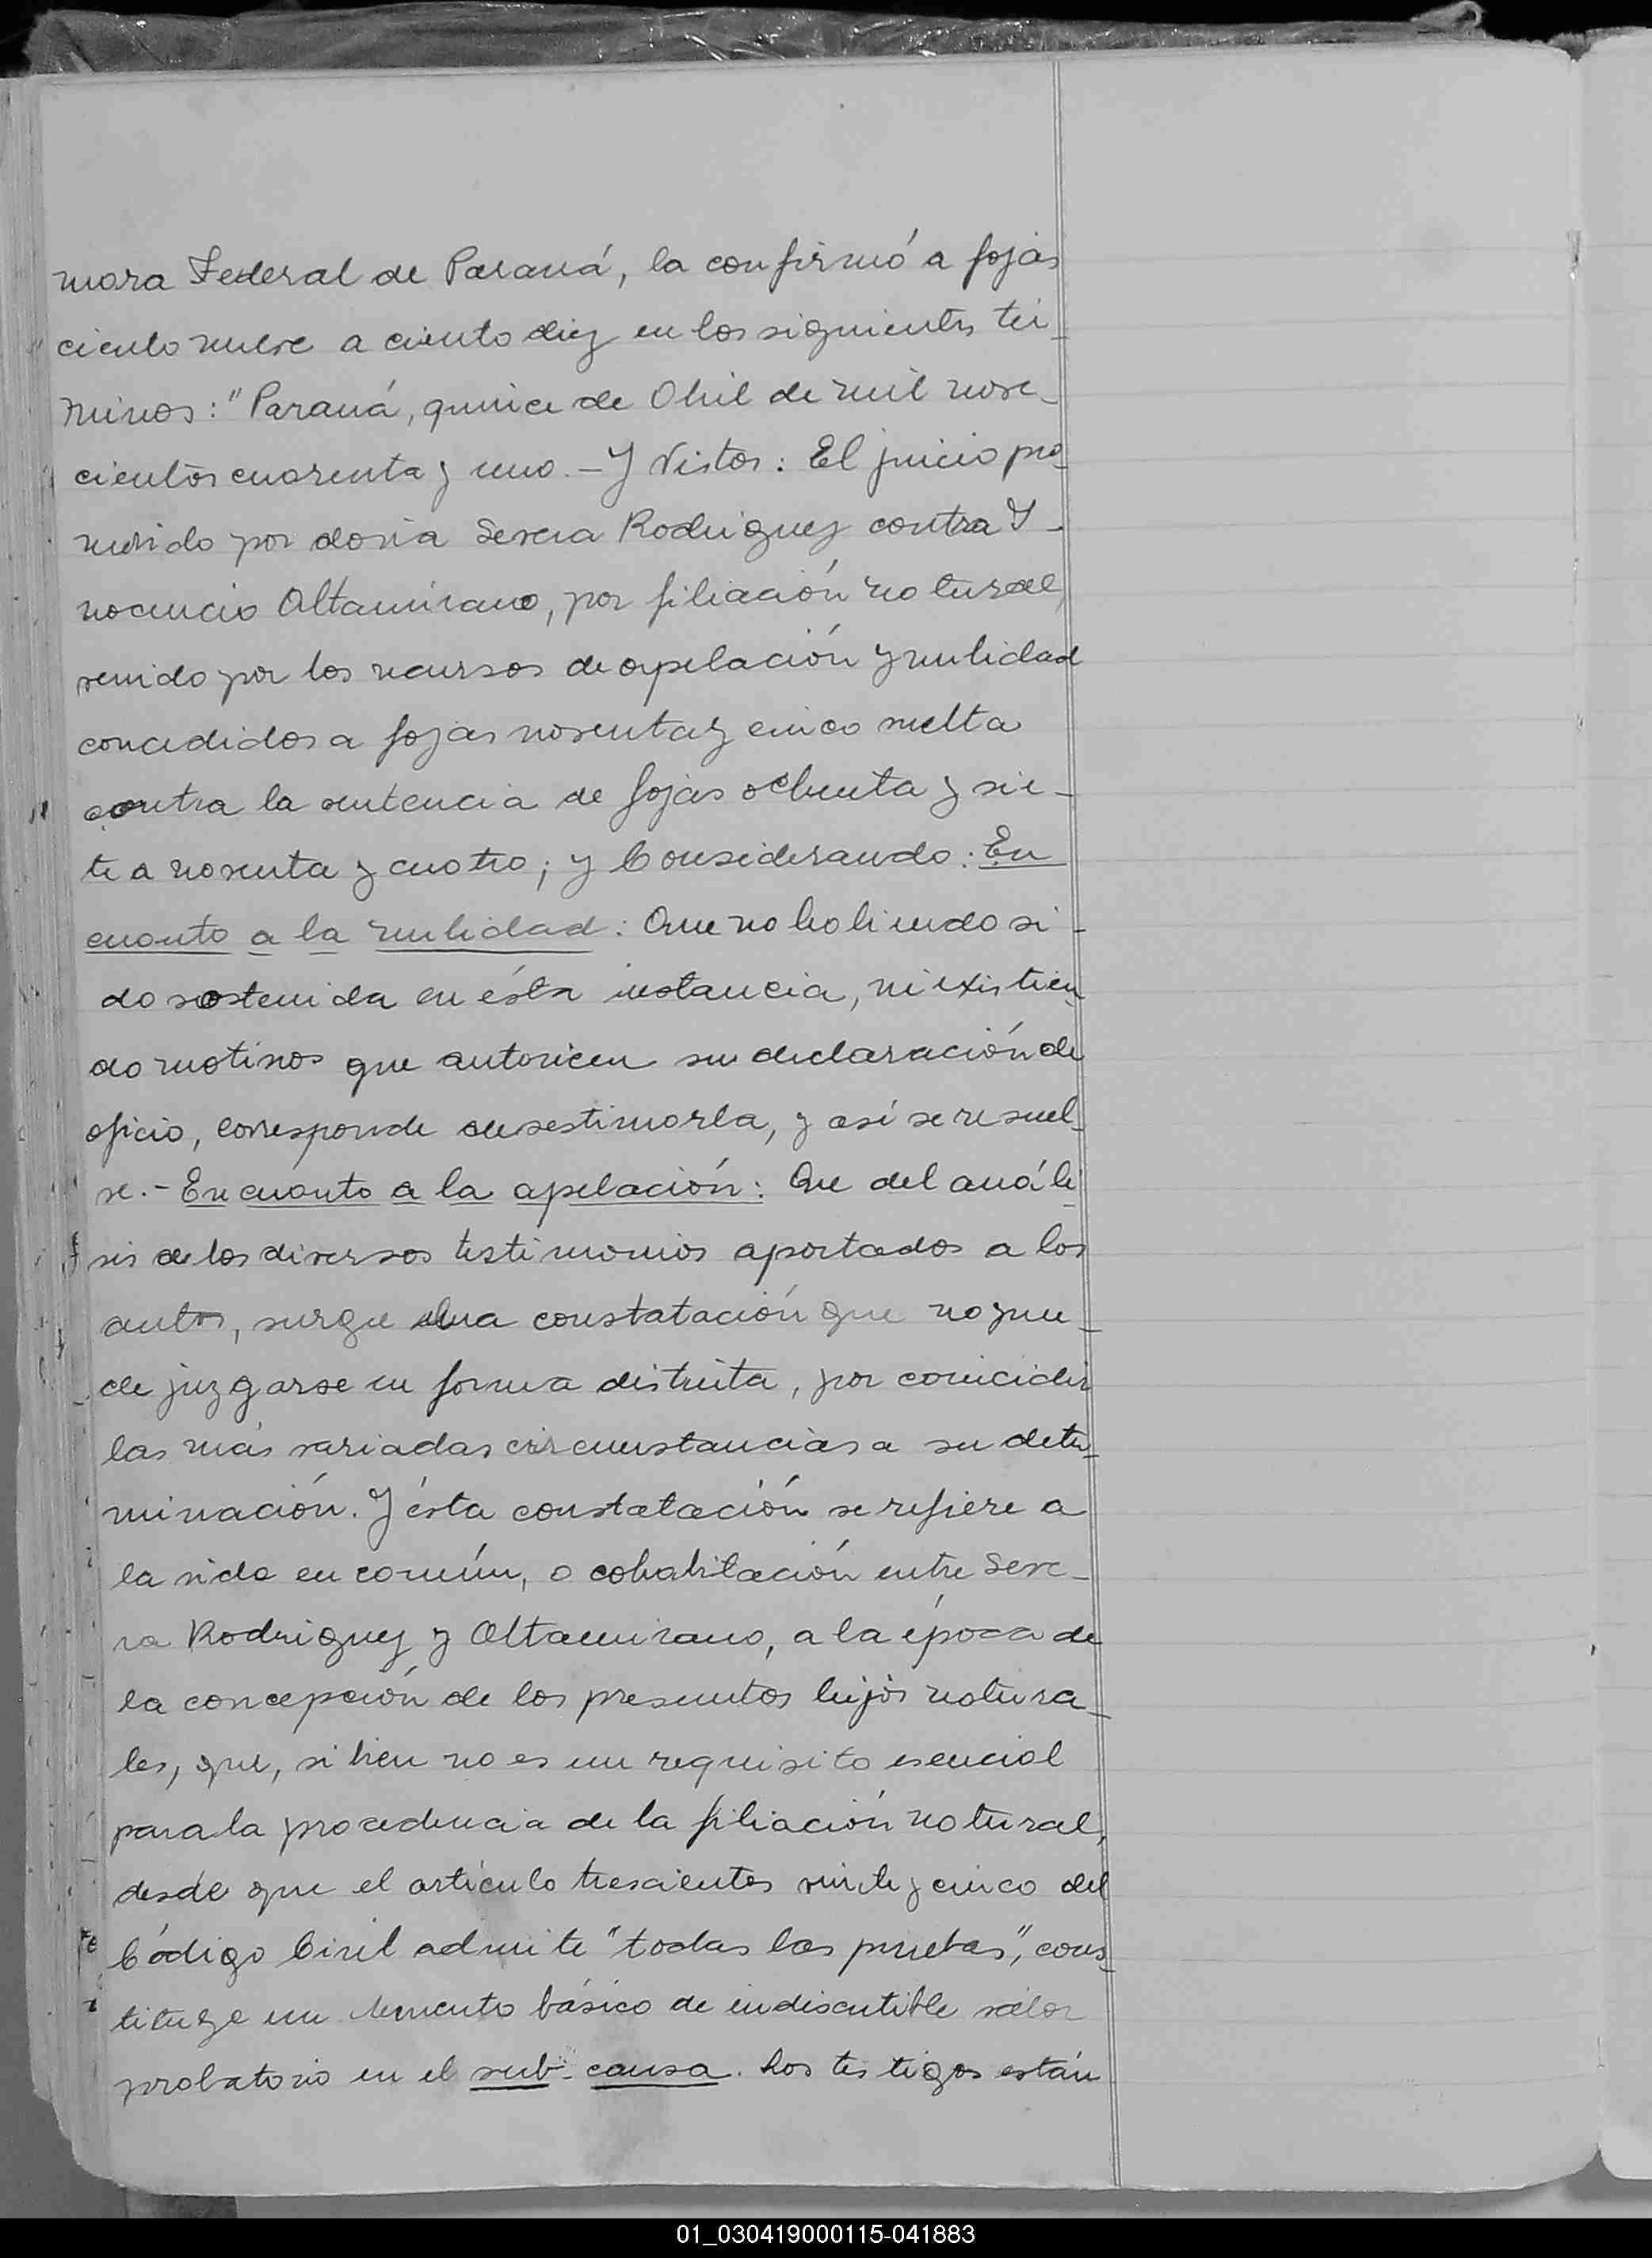 mara Federal de Paraná, la confirmó a fojas
ciento nueve a ciento diez en los siguientes tér-
minos: "Paraná, quince de Abril de mil nove-
cientos cuarenta y uno.- Y Vistos: El juicio pro-
movido por doña Severa Rodriguez contra I-
nocencio Altamirano, por filiación natural,
venido por los recursos de apelación y nulidad
concedidos a fojas noventa y cinco vuelta
contra la sentencia de fojas ochenta y sie-
te a noventa y cuatro; y Considerando: En
cuanto a la nulidad: Que no habiendo si-
do sostenida en ésta instancia, ni existien-
do motivos que autoricen su declaración de
oficio, corresponde desestimarla, y así se resuel-
ve.- En cuanto a la apelación: Que del análi-
sis de los diversos testimonios aportados a los
autos, surge una constatación que no pue-
de juzgarse en forma distinta, por coincidir
las más variadas circunstancias a su deter-
minación. Y ésta constatación se refiere a
la vida en común, o cohabitación entre Seve-
ra Rodriguez y Altamirano, a la época de
la concepción de los presuntos hijos natura-
les, que, si bien no es un requisito esencial
para la procedencia de la filiación natural,
desde que el artículo trescientos veinte y cinco del
Código Civil admite "todas las pruebas", cons-
tituye un elemento básico de indiscutible valor
probatorio en el sub-causa. Los testigos están
01_030419000115-041883